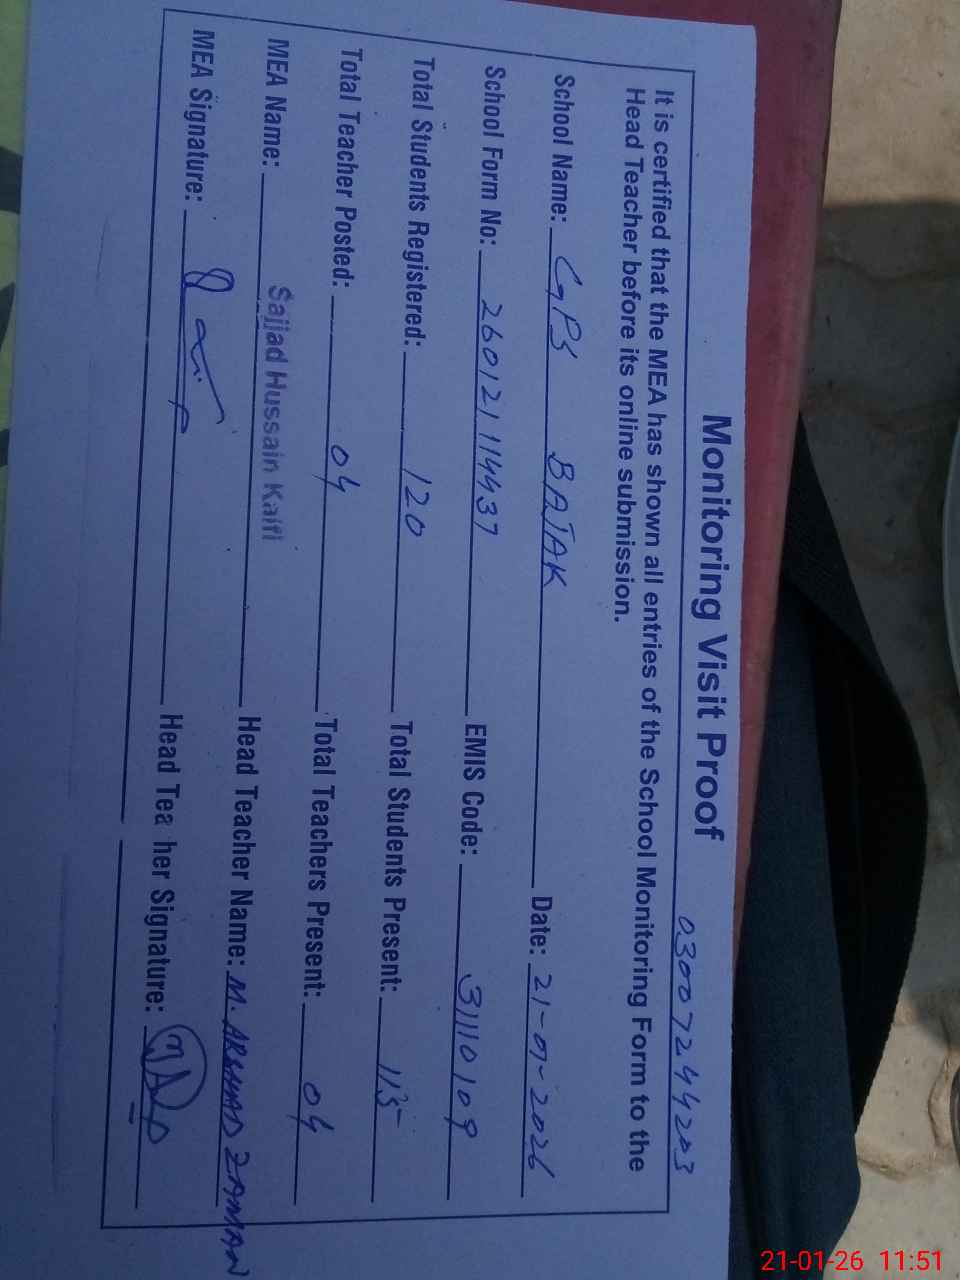 Monitoring Visit Proof 03007244203
It is certified that the MEA has shown all entries of the School Monitoring Form to the
Head Teacher before its online submission.
School Name: GPS BATAK Date: 21-01-2026
School Form No: 260121114437 EMIS Code: 31110109
Total Students Registered: 120 Total Students Present: 115
Total Teacher Posted: 04 Total Teachers Present: 04
MEA Name: Sajjad Hussain Kaifi Head Teacher Name: M. ARSHAD ZAMAN
MEA Signature: Head Tea her Signature:
21-01-26 11:51